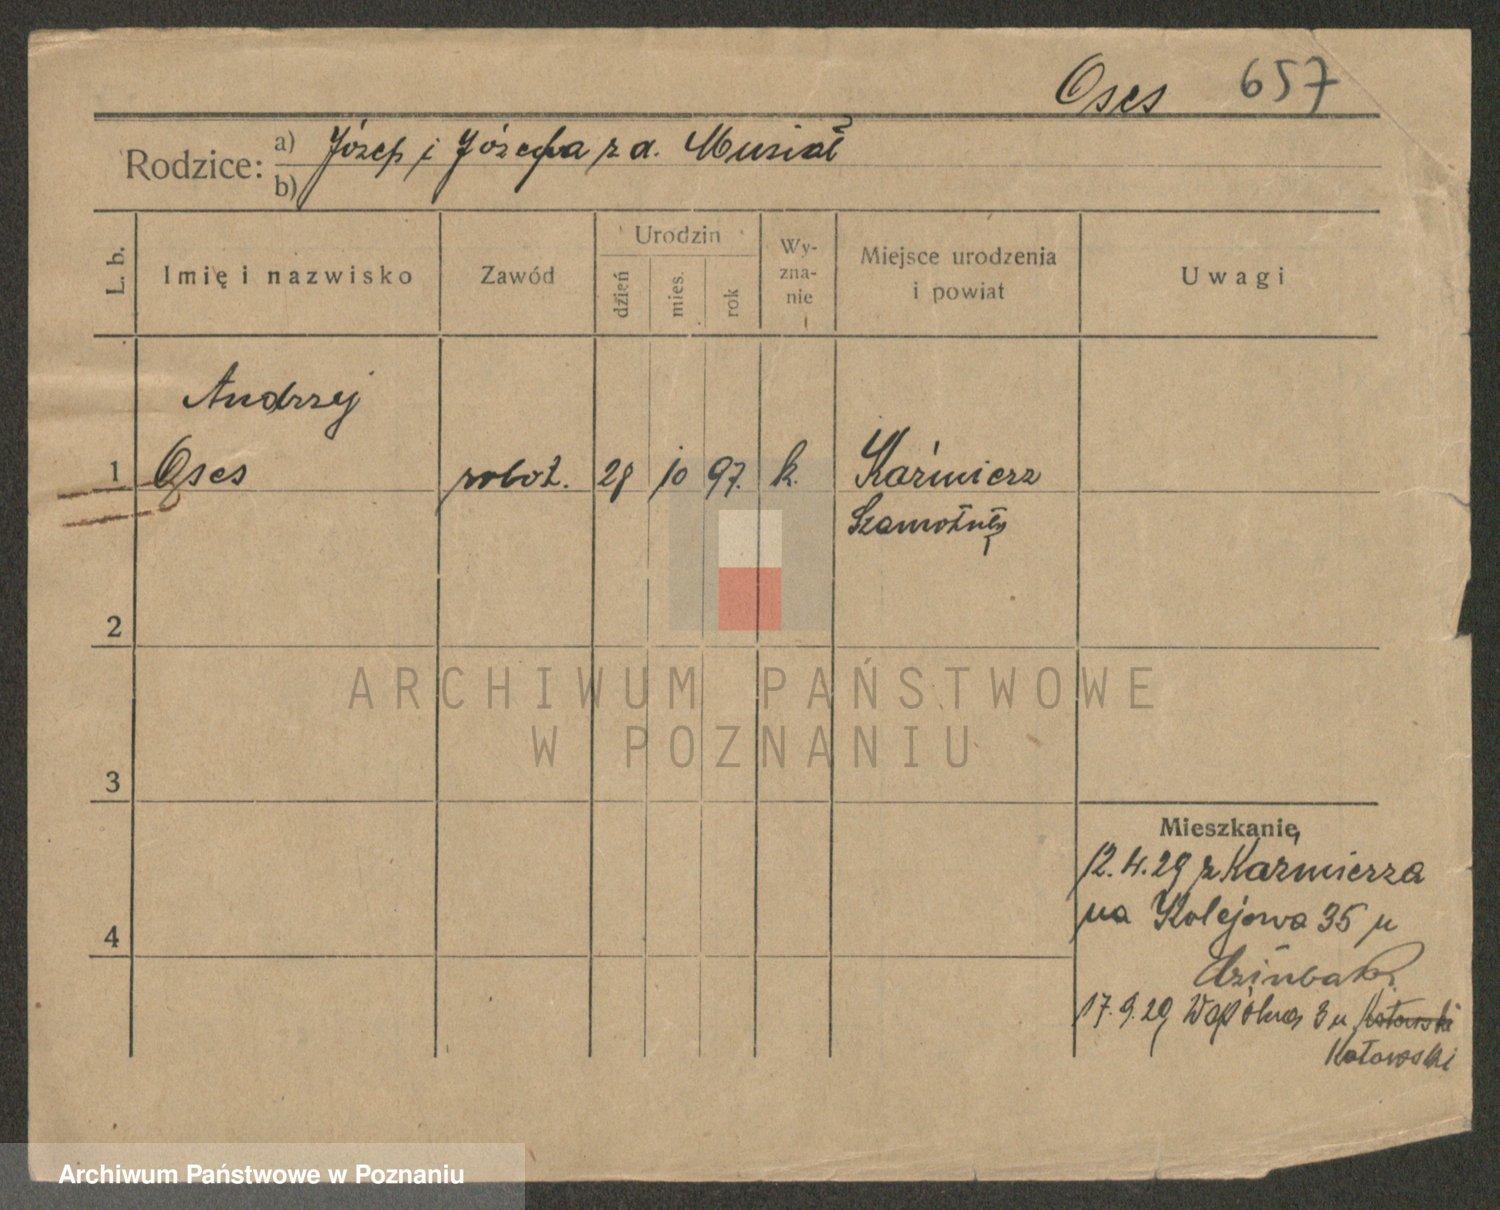 Oses 657
Rodzice: a) Józef i Józefa z d. Musiał
b)
L. b. Imię i nazwisko Zawód Urodzin dzień mies. rok Wy-zna-nie Miejsce urodzenia i powiat Uwagi
Andrzej
1 Oses robot. 28 10 97. k. Kaźmierz
Szamotuły
2
ARCHIWUM PAŃSTWOWE
W POZNANIU
3
Mieszkanie
12.4.29 z Kaźmierza
na Kolejowa 35 u
4
17.9.29 Wspólna 3 u Kotowski
Kotowski
Archiwum Państwowe w Poznaniu